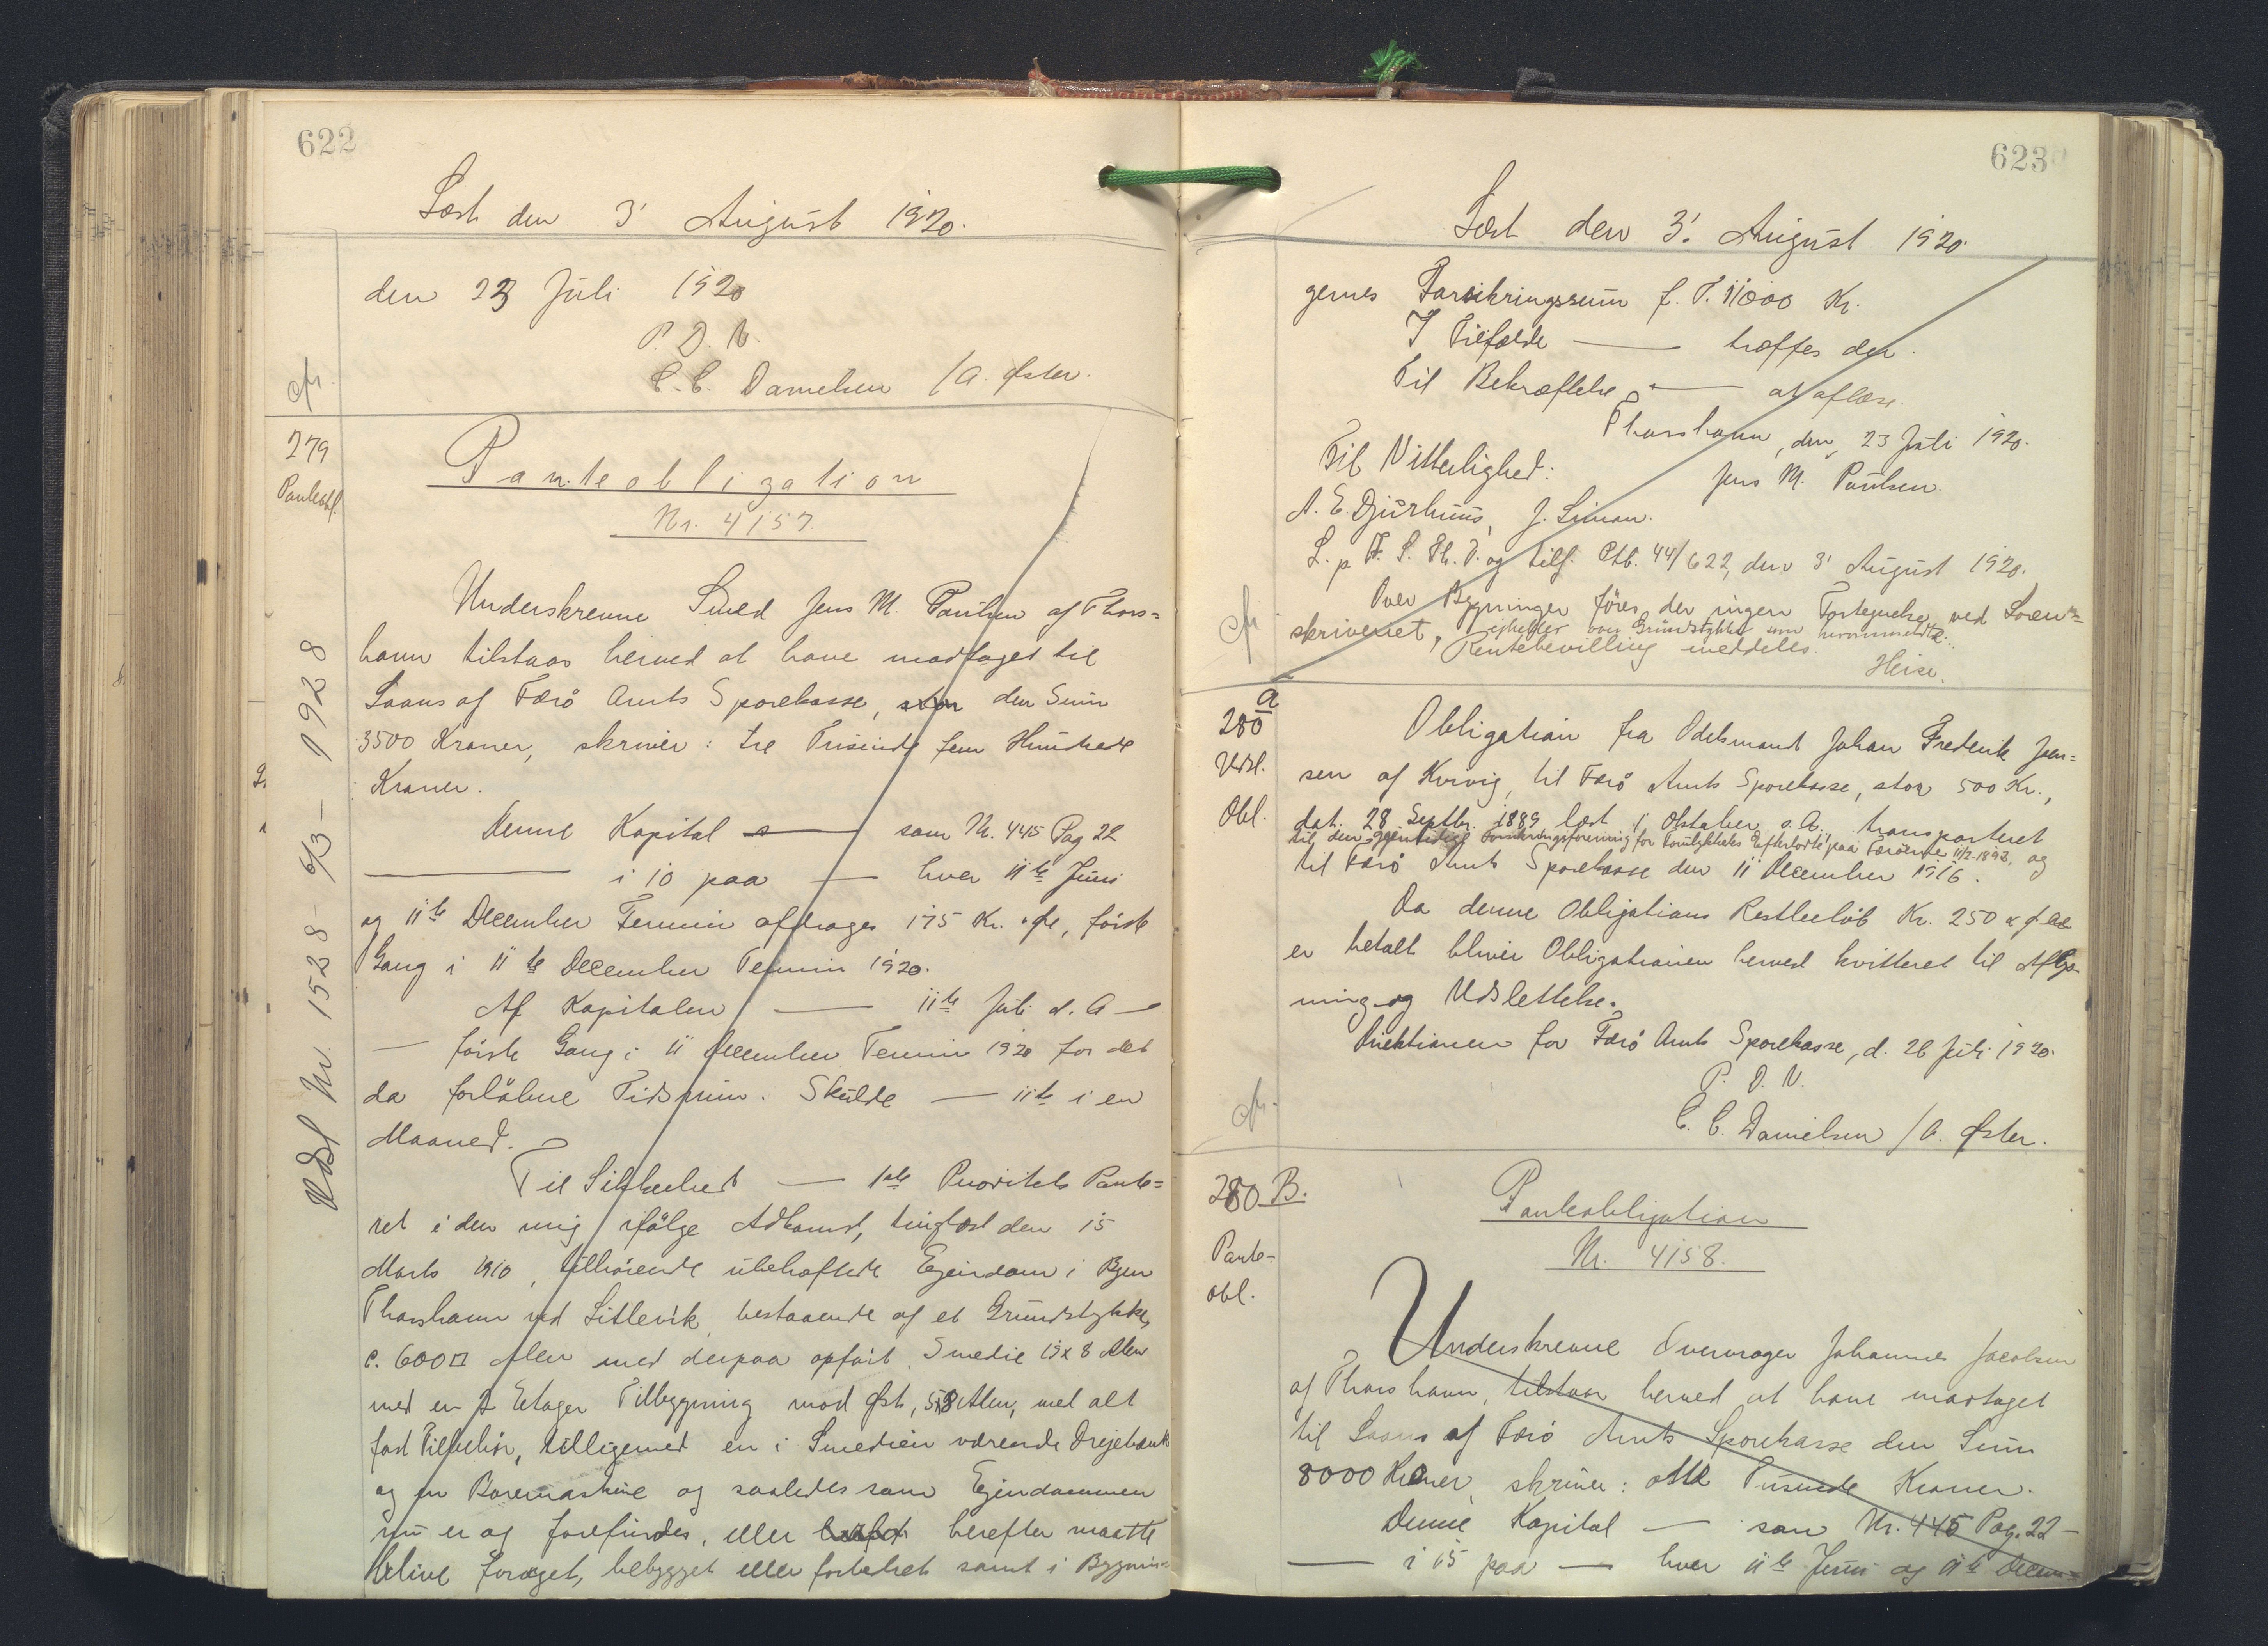 622
Læst den 3' August 1920.
den 23 Juli 1920
P. D. V.
C. C. Danielsen / A. Øster.
cfr.
279
Panteobl.
Panteobligation
Nr. 4157.
Udsl Nr. 1528 - 6/3 - 1928
Underskrevne Smed Jens M. Poulsen af Thors=
havn tilstaar herved at have modtaget til
Laans af Færø Amts Sparekasse, den Sum
3500 Kroner, skriver: tre Tusinde fem Hundrede
Kroner.
Denne Kapital — som Nr. 445 Pag 22
— i 10 paa — hver 11te Juni
og 11te December Termin afdrages 175 Kr. første
Gang i 11te December Termin 1920.
Af Kapitalen — 11te Juli d. A —
— første Gang i 11 December Termin 1920 for det
da forløbne Tidsrum. Skulde — 11te i en
Maaned.
Til Sikkerhed — 1ste Prioritets Pante=
ret i den mig ifølge Adkomst, tinglæst den 15
Marts 1910, tilhørende ubehæftede Ejendom i Byen
Thorshavn ved Sitlevik, bestaaende af et Grundstykke,
c. 600 □ Alen med derpaa opført Smedie 19 x 8 Alen
med en 2 Etager Tilbygning mod Øst, 5x8 Alen, med alt
fast Tilbehør, tilligemed en i Smedien værende Drejebænk
og en Boremaskine og saaledes som Ejendommen
nu er og forefindes, eller herefter maatte
blive forøget, bebygget eller forbedret samt i Bygnin=
623
Læst den 3'. August 1920.
gernes Forsikringssum f. T. 11000 Kr.
I Tilfælde — træffes der.
Til Bekræftelse — at aflæse.
Thorshavn, den 23 Juli 1920.
Til Vitterlighed: Jens M. Poulsen.
A. E. Djurhuus, J. Simon.
L. p F. S. Th. T. og tilf. Ptb. 44/622, den 3' August 1920.
cfr
Over Bygninger føres der ingen Fortegnelse ved Soren=
skriveriet, ejheller over Grundstykket som
Rentebevilling meddeles.
Heise.
280 a
Udsl.
Obl.
Obligation fra Odelsmand Johan Frederik Joen=
sen af Kvivig, til Færø Amts Sparekasse, stor 500 Kr.,
dat. 28 Septbr. 1889 læst 1 Oktober s. A. transporteret
til den gensidige Forsikringsforening for Forulykkedes Efterladte paa Færøerne 11/2-1892, og
til Færø Amts Sparekasse den 11 December 1916.
Da denne Obligations Restbeløb Kr. 250
er betalt bliver Obligationen herved kvitteret til Aflys=
ning og Udslettelse.
Direktionen for Færø Amts Sparekasse, d. 26 Juli 1920.
P. D. V.
cfr.
C. C. Danielsen / A. Øster.
280 B.
Pante-
obl.
Panteobligation
Nr. 4158.
Underskrevne Overvrager Johannes Jacobsen
af Thorshavn, tilstaar herved at have modtaget
til Laans af Færø Amts Sparekasse den Sum
8000 Kroner, skriver: otte Tusinde Kroner.
Denne Kapital — som Nr. 445 Pag. 22 —
— i 15 paa — hver 11te Juni og 11te Decem=